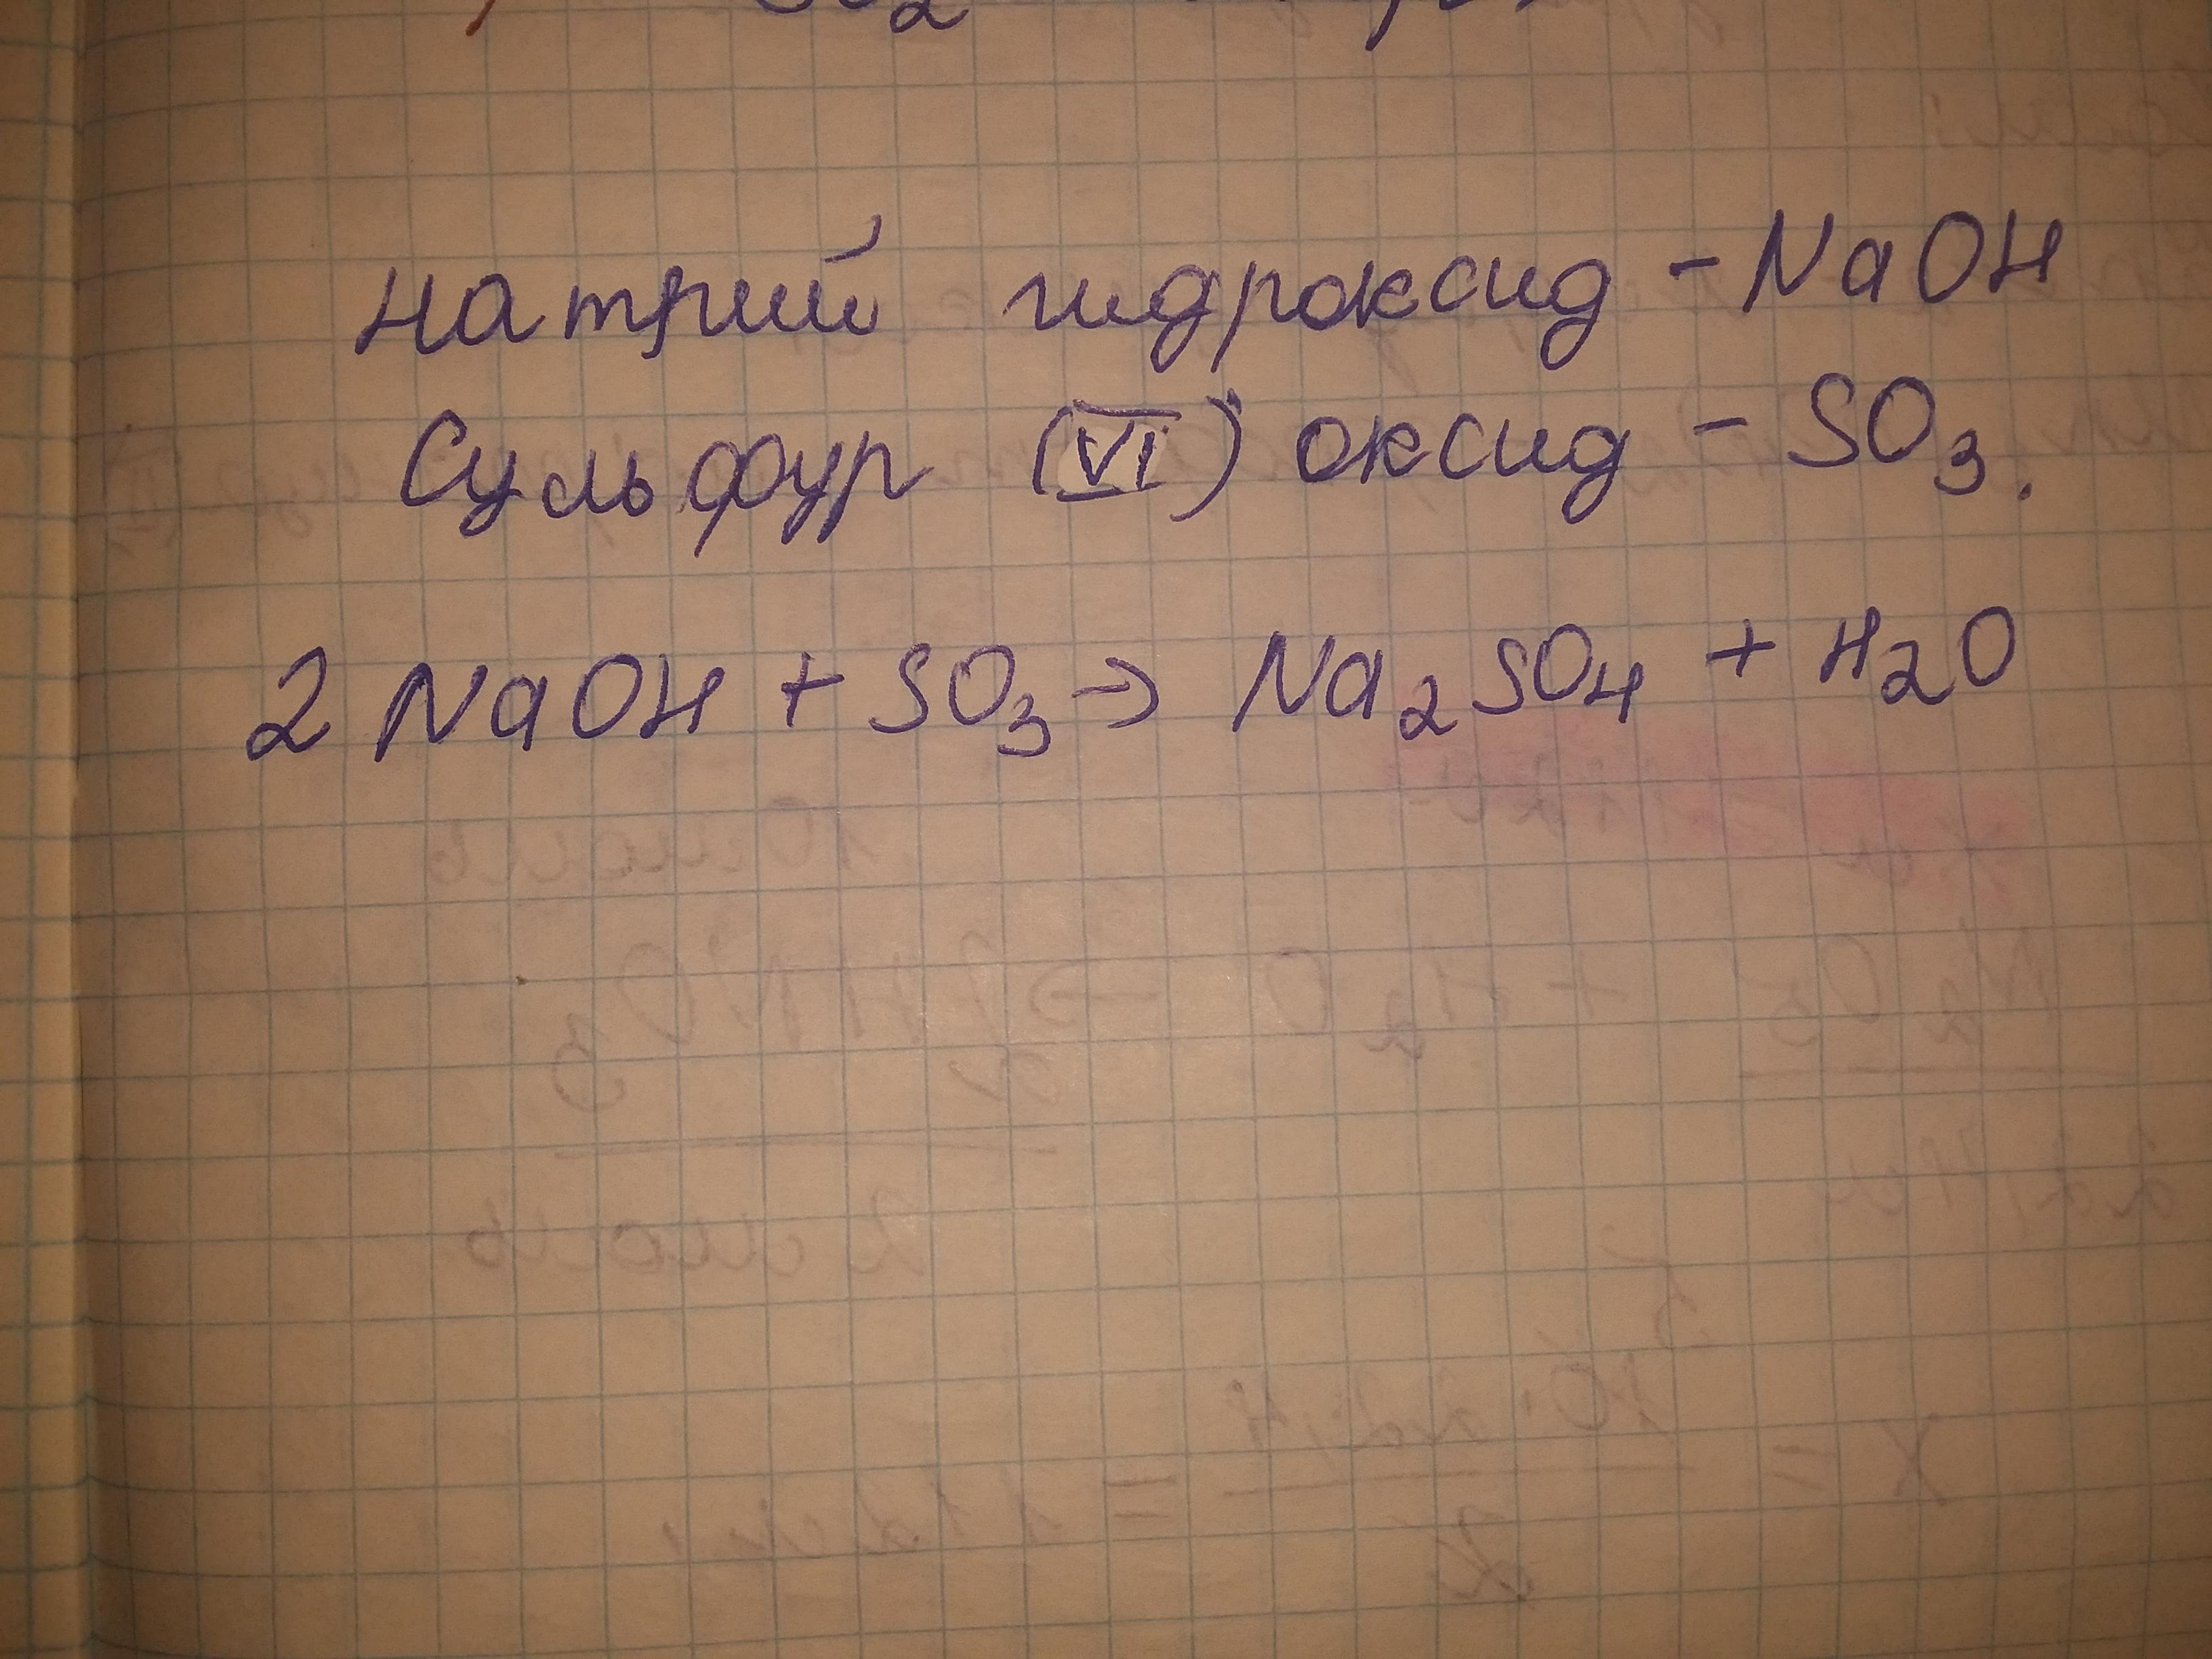 натрий гидроксид - NaOH
Сульфур (VI) оксид - SO₃.
2 NaOH + SO₃ → Na₂SO₄ + H₂O